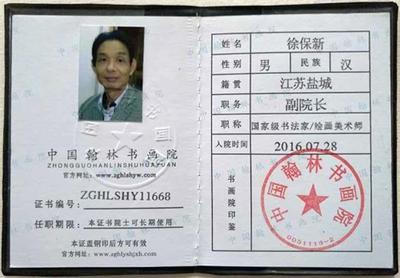 中国翰林书画院
ZHONGGUOHANLINSHUHUAYUAN
官方网址:www.zghlshyw.com
证书编号: ZGHLSHY11668
任职期限: 本证书院士可长期使用
本证盖钢印后方可有效
官方网址:www.zghlyshjxh.com
姓名 徐保新
性别 男 民族 汉
籍贯 江苏盐城
职务 副院长
职称 国家级书法家/绘画美术师
入院时间 2016.07.28
书画院印鉴
中国翰林书画院